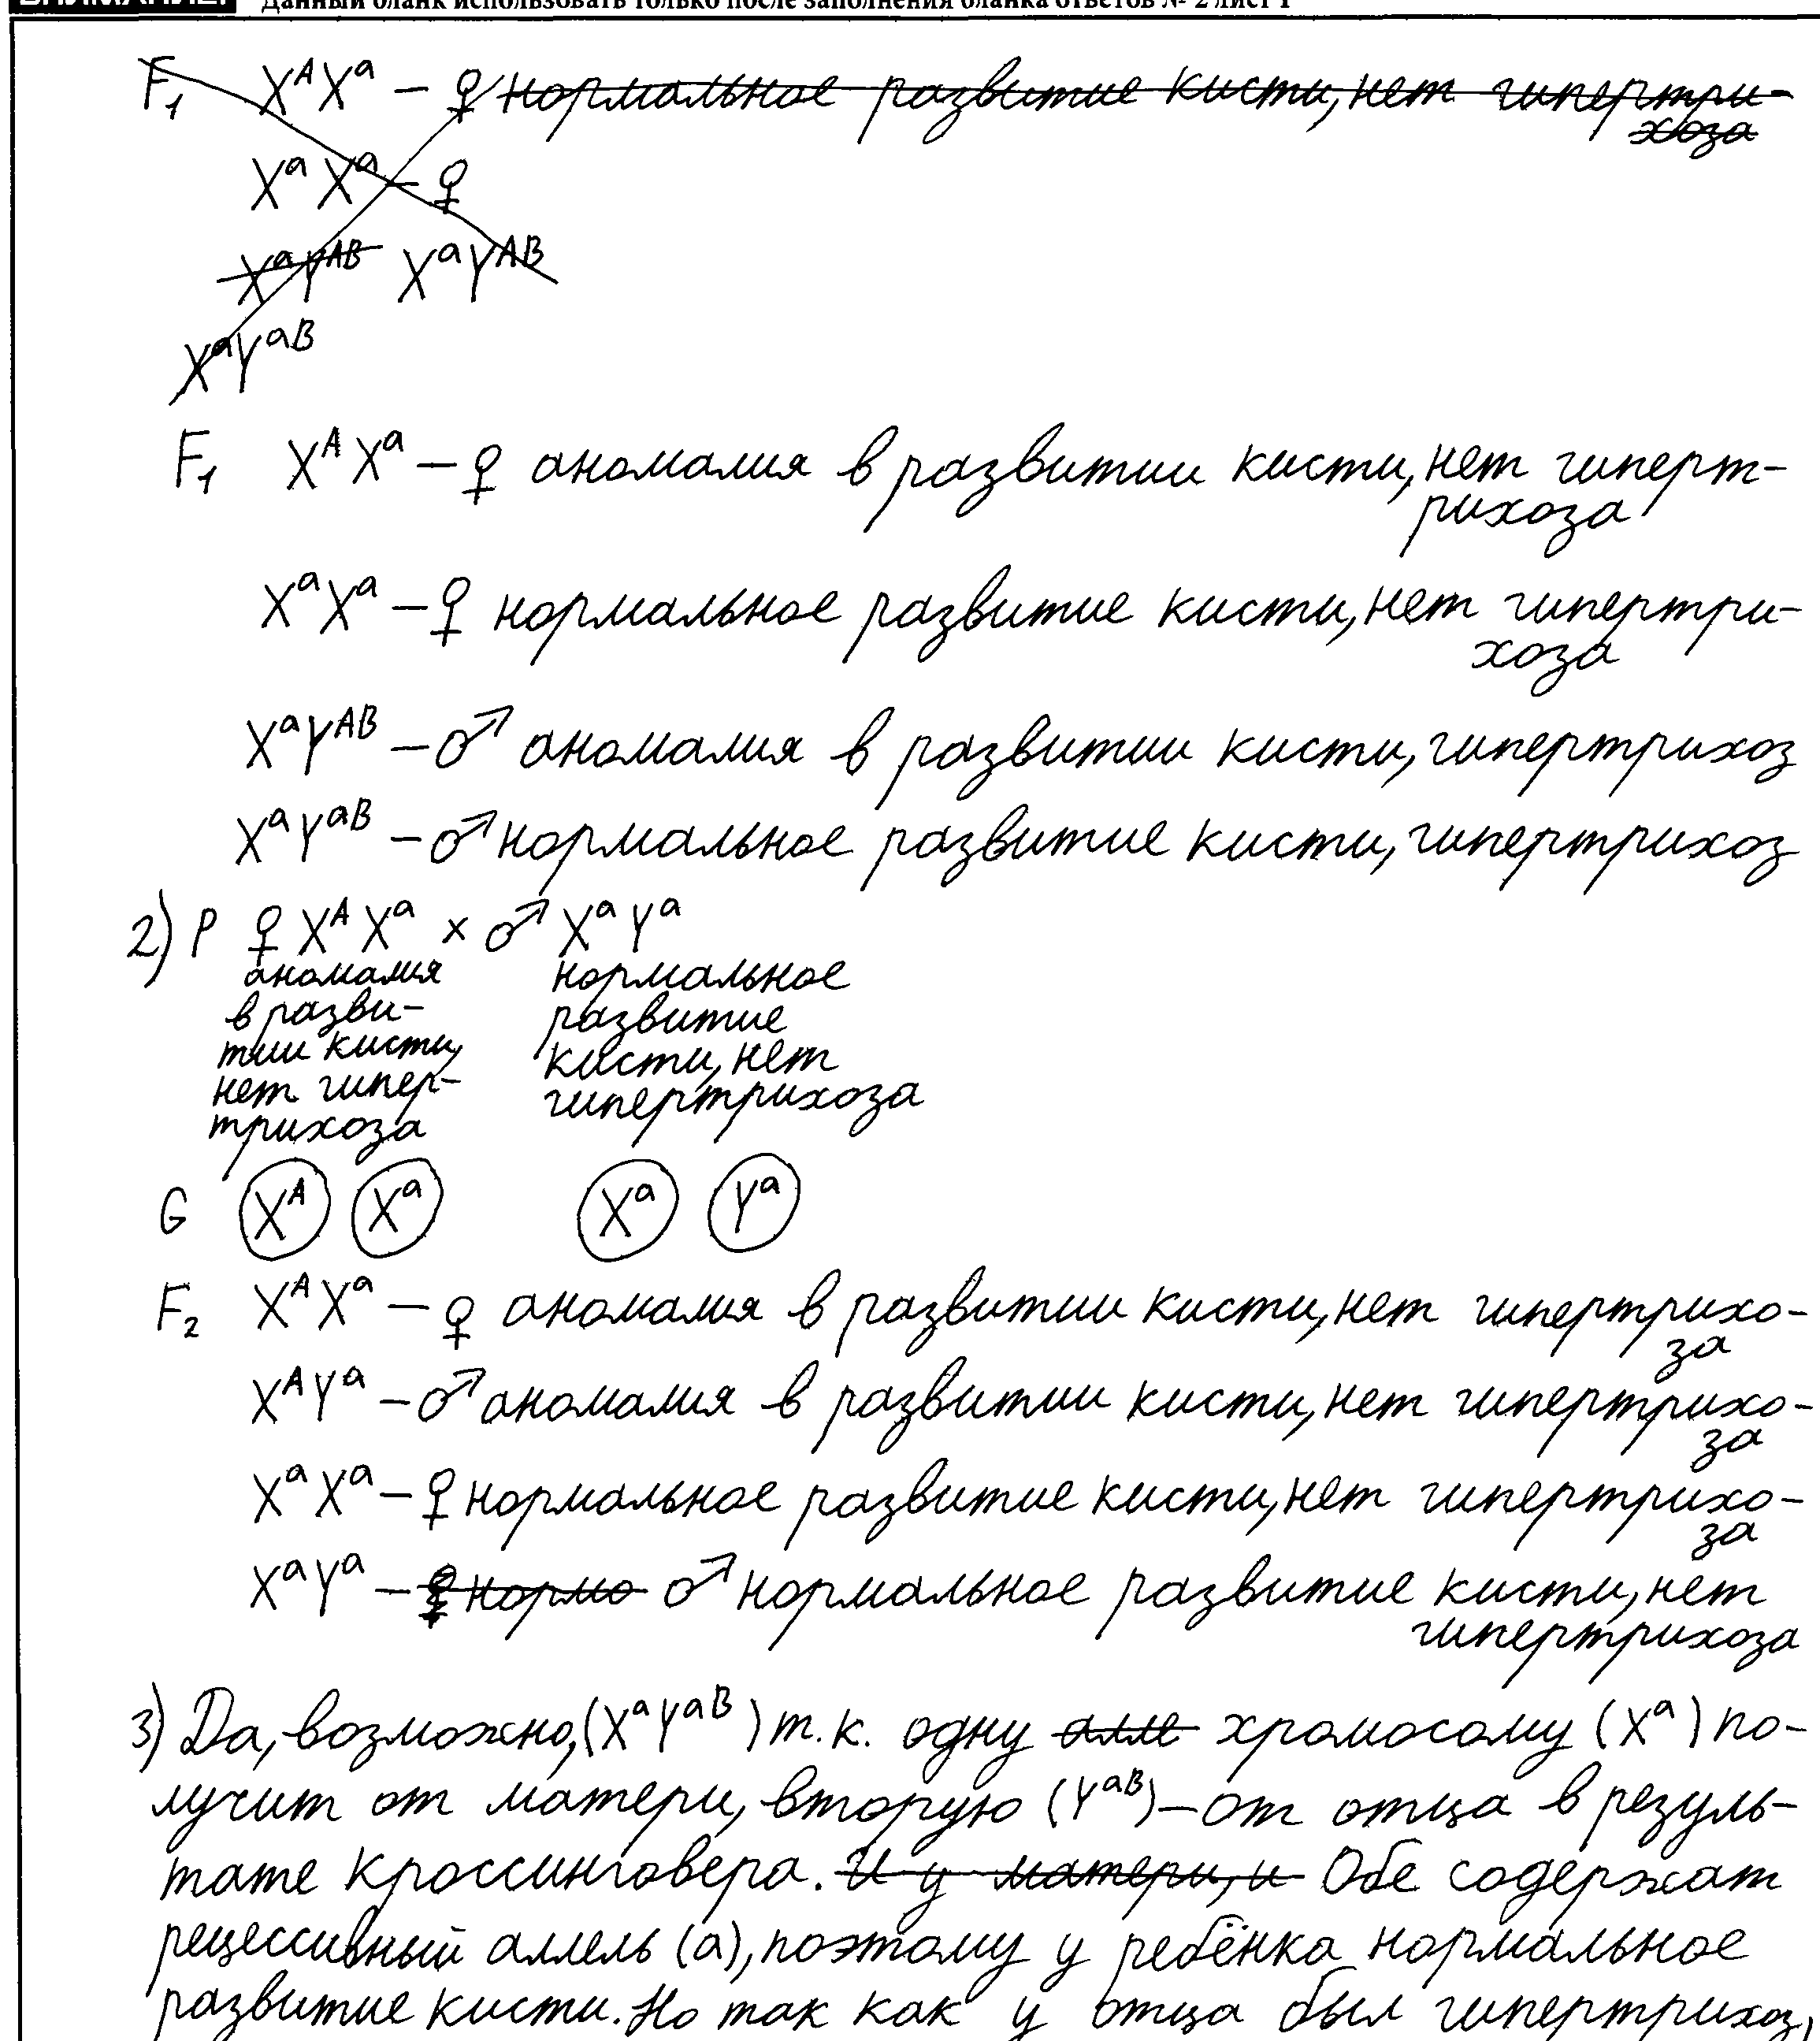 Данный бланк использовать только после заполнения бланка ответов № 2 лист 1
F₁ XᴬXᵃ – ♀ нормальное развитие кисти, нет гипертри-
хоза
XᵃXᵃ – ♀
XᵃYᴬᴮ XᵃYᴬᴮ
XᵃYᵃᴮ
F₁ XᴬXᵃ – ♀ аномалия в развитии кисти, нет гиперт-
рихоза
XᵃXᵃ – ♀ нормальное развитие кисти, нет гипертри-
хоза
XᵃYᴬᴮ – ♂ аномалия в развитии кисти, гипертрихоз
XᵃYᵃᴮ – ♂ нормальное развитие кисти, гипертрихоз
2) P ♀ XᴬXᵃ × ♂ XᵃYᵃ
аномалия нормальное
в разви- развитие
тии кисти, кисти, нет
нет гипер- гипертрихоза
трихоза
G Xᴬ Xᵃ Xᵃ Yᵃ
F₂ XᴬXᵃ – ♀ аномалия в развитии кисти, нет гипертрихо-
за
XᴬYᵃ – ♂ аномалия в развитии кисти, нет гипертрихо-
за
XᵃXᵃ – ♀ нормальное развитие кисти, нет гипертрихо-
за
XᵃYᵃ – ♀ нормо ♂ нормальное развитие кисти, нет
гипертрихоза
3) Да, возможно, (XᵃYᵃᴮ) т.к. одну алле хромосому (Xᵃ) по-
лучит от матери, вторую (Yᵃᴮ) – от отца в резуль-
тате кроссинговера. И у матери, и Обе содержат
рецессивный аллель (а), поэтому у ребёнка нормальное
развитие кисти. Но так как у отца был гипертрихоз,